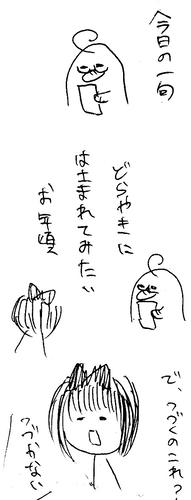 今日の一句
どらやきに
はさまれてみたい
お年頃
で、つづくのこれ?
つづかない